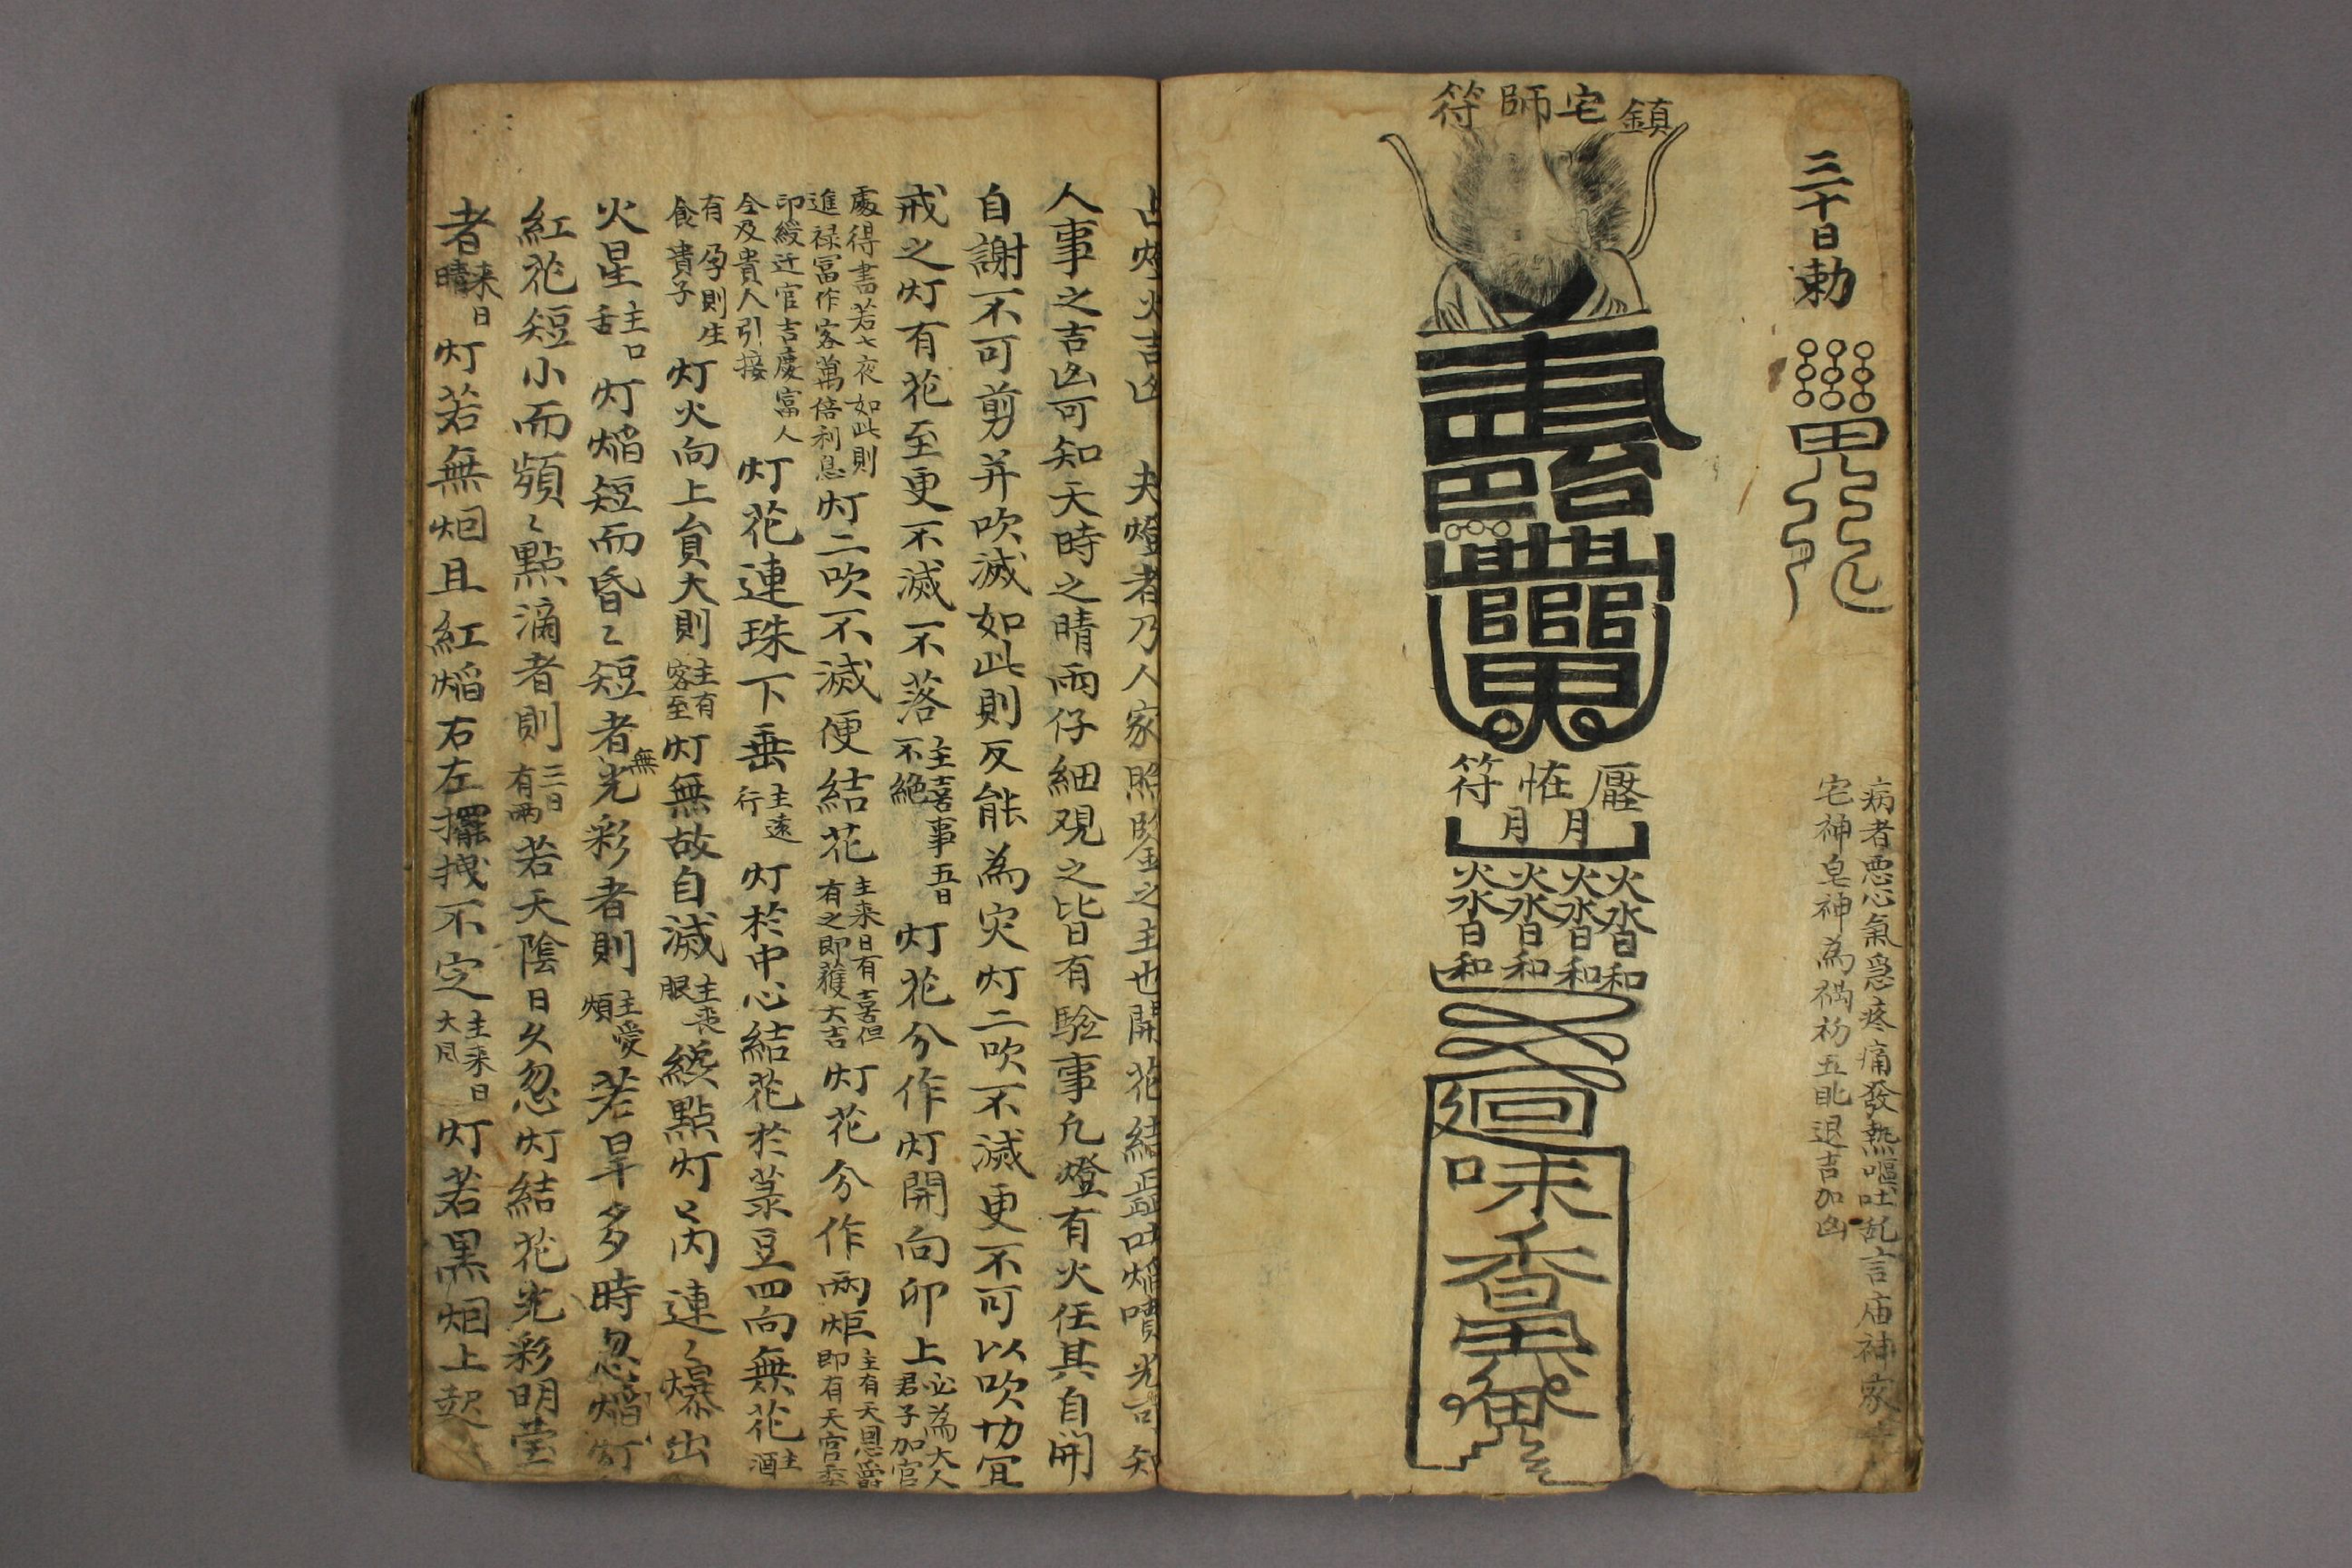 三十日勅
病者悪心氣急疼痛發熱嘔吐乱言庙神家
宅神皂神為禍初五眂退吉加凶
鎮宅師符
壓恠符
月月
火沓和火沓和火沓和火沓和
廻
味
香
占灯火吉凶 夫燈者乃人家照臨之主也開花結蕋吐焰噴光吉知
人事之吉凶可知天時之晴雨仔細观之皆有驗事凢燈有火任其自開
自謝不可剪并吹滅如此則反能為灾灯二吹不滅更不可以吹切宜
戒之灯有花至更不滅不落主喜事五日不絶灯花分作灯開向卯上必為大人君子加官
進禄冨作客萬倍利息處得書若七夜如此則灯二吹不滅便結花主来日有喜但有之即獲大吉灯花分作兩炬主有天恩爵即有天官委
印綬迁官吉慶富人全及貴人引接灯花連珠下垂主遠行灯於中心結花於菉豆四向無花主酒
食有孕則生貴子灯火向上貟大則主有客至灯無故自滅主丧服纔點灯芮連〻爆出
火星主口舌灯焰短而昏〻短者無光彩者則主憂煩若旱多時忽焰灯
紅花短小而頻〻點滴者則三日有雨若天陰日久忽灯結花光彩明莹
者来日晴灯若無烟且紅焰右左擺拽不定主来日大風灯若黒烟上起